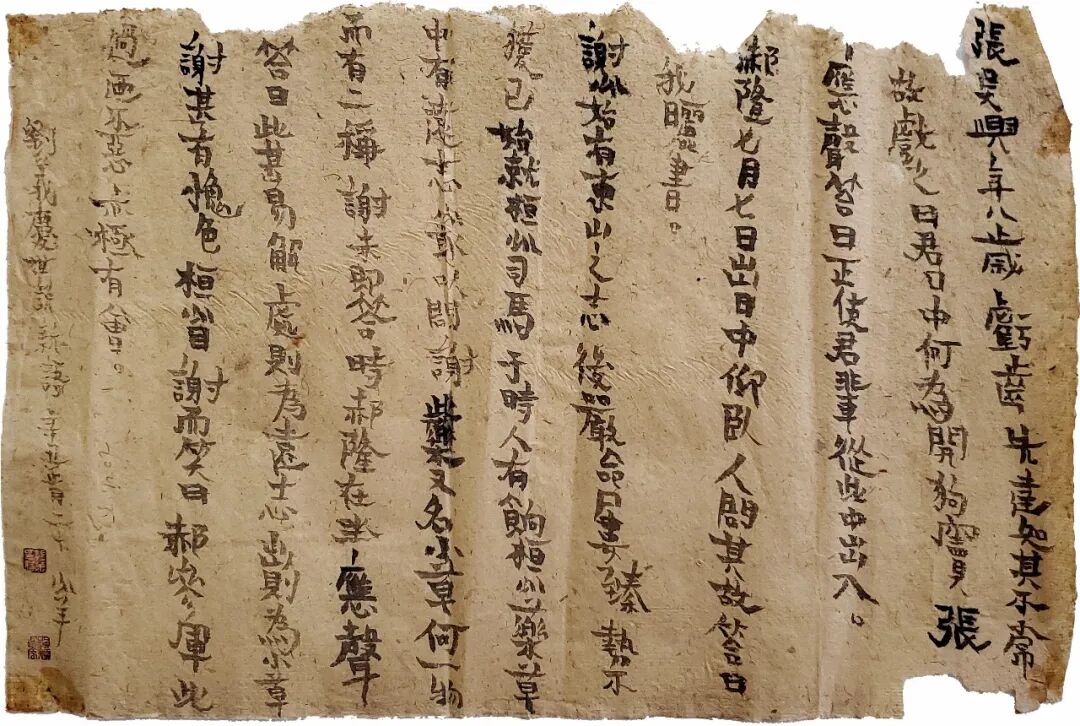 張吳興年八歲虧齒先達知其不常
故戲之曰君口中何為開狗竇張
應聲答曰正使君輩從此中出入。
郝隆七月七日出日中仰臥人問其故答曰
我曬書。
謝公始有東山之志後嚴命屢臻勢不
獲已始就桓公司馬于時人有餉桓公藥草
中有遠志公取以問謝此藥又名小草何一物
而有二稱謝未即答時郝隆在坐應聲
答曰此甚易解處則為遠志出則為小草
謝甚有愧色桓公目謝而笑曰郝參軍此
過乃不惡亦極有會。
劉義慶世說新語